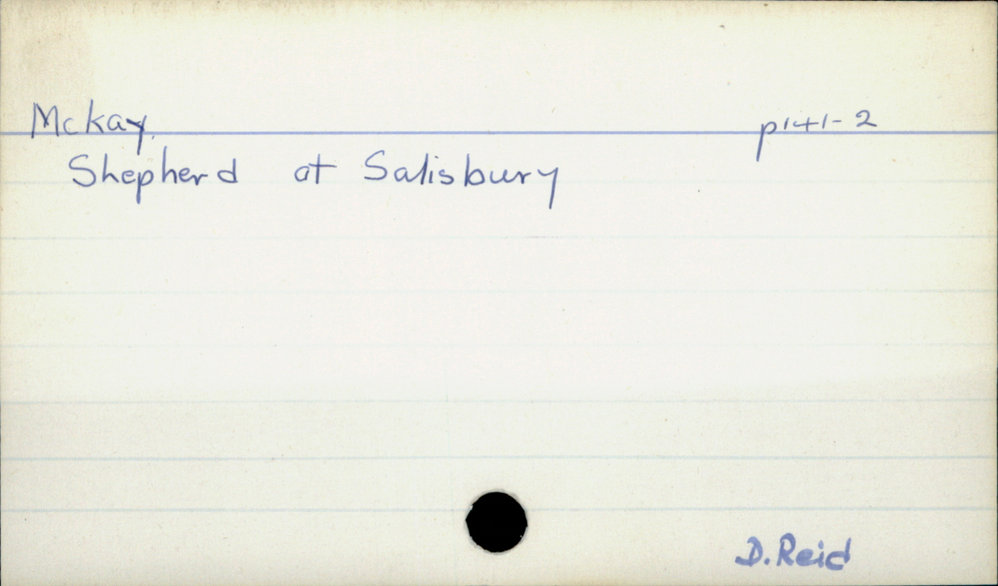 Mckay. p141-2
Shepherd at Salisbury
D. Reid